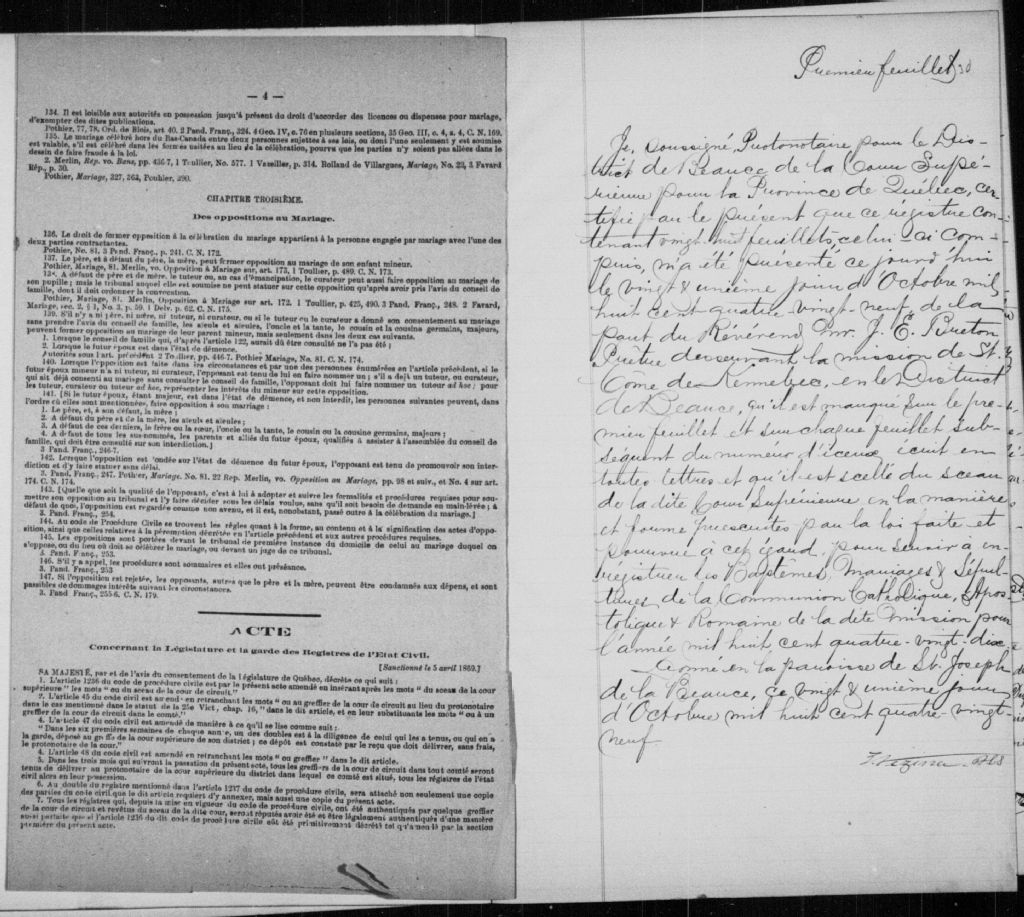 — 4 —
134. Il est loisible aux autorités en possession jusqu'à présent du droit d'accorder des licences ou dispenses pour mariage,
d'exempter des dites publications.
Pothier, 77, 78, Ord. de Blois, art 40. 2 Pand. Franç., 324. 4 Geo. IV, c. 76 en plusieurs sections, 35 Geo. III, c. 4, s. 4, C. N. 169.
135. Le mariage célébré hors du Bas-Canada entre deux personnes sujettes à ses lois, ou dont l'une seulement y est soumise
est valable, s'il est célébré dans les formes usitées au lieu de la célébration, pourvu que les parties n'y soient pas allées dans le
dessein de faire fraude à la loi.
2. Merlin, Rép. vo. Bans, pp. 436-7, 1 Toullier, No. 577. 1 Vazeilles, p. 314. Rolland de Villargues, Mariage, No. 23, 3 Favard
Rép., p. 30.
Pothier, Mariage, 327, 363, 390.
CHAPITRE TROISIÈME.
Des oppositions au Mariage.
136. Le droit de former opposition à la célébration du mariage appartient à la personne engagée par mariage avec l'une des
deux parties contractantes.
Pothier, No. 81. 3 Pand. Franç., p. 241. C. N. 172.
137. Le père, et à défaut du père, la mère, peut former opposition au mariage de son enfant mineur.
Pothier, Mariage, 81. Merlin, vo. Opposition à Mariage sur, art. 173, 1 Toullier, p. 489. C. N. 173.
138. A défaut de père et de mère, le tuteur ou, au cas d'émancipation, le curateur peut aussi faire opposition au mariage de
son pupille; mais le tribunal auquel elle est soumise ne peut statuer sur cette opposition qu'après avoir pris l'avis du conseil de
famille, dont il doit ordonner la convocation.
Pothier, Mariage, 81. Merlin, Opposition à Mariage sur art. 172. 1 Toullier, p. 425, 490. 3 Pand. Franç., 248. 2 Favard,
Mariage, sec. 2, § 1, No. 3, p. 59. 1 Delv. p. 62. C. N. 175.
139. S'il n'y a ni père, ni mère, ni tuteur, ni curateur, ou si le tuteur ou le curateur a donné son consentement au mariage
sans prendre l'avis du conseil de famille, les aïeuls et aïeules, l'oncle et la tante, le cousin et la cousine germains, majeurs,
peuvent former opposition au mariage de leur parent mineur, mais seulement dans les deux cas suivants.
1. Lorsque le conseil de famille qui, d'après l'article 122, aurait dû être consulté ne l'a pas été;
2. Lorsque le futur époux est dans l'état de démence.
Autorités sous l'art. précédent 2 Toullier, pp. 446-7. Pothier Mariage, No. 81. C. N. 174.
140. Lorsque l'opposition est faite dans les circonstances et par une des personnes énumérées en l'article précédent, si le
futur époux mineur n'a ni tuteur, ni curateur, l'opposant est tenu de lui en faire nommer un; s'il a déjà un tuteur, ou curateur,
qui ait déjà consenti au mariage sans consulter le conseil de famille, l'opposant doit lui faire nommer un tuteur ad hoc; pour
les tuteur, curateur ou tuteur ad hoc, représenter les intérêts du mineur sur cette opposition.
141. [Si le futur époux, étant majeur, est dans l'état de démence, et non interdit, les personnes suivantes peuvent, dans
l'ordre où elles sont mentionnées, faire opposition à son mariage:
1. Le père, et, à son défaut, la mère;
2. A défaut du père et de la mère, les aïeuls et aïeules;
3. A défaut de ces derniers, le frère ou la sœur, l'oncle ou la tante, le cousin ou la cousine germains, majeurs;
4. A défaut de tous les sus-nommés, les parents et alliés du futur époux, qualifiés à assister à l'assemblée du conseil de
famille, qui doit être consulté sur son interdiction.]
3 Pand. Franç., 246-7.
142. Lorsque l'opposition est fondée sur l'état de démence du futur époux, l'opposant est tenu de promouvoir son inter-
diction et d'y faire statuer sans délai.
3. Pand. Franç., 247. Pothier, Mariage. No. 81. 22 Rep. Merlin, vo. Opposition au Mariage, pp. 98 et suiv., et No. 4 sur art.
174. C. N. 174.
143. [Quelle que soit la qualité de l'opposant, c'est à lui à adopter et suivre les formalités et procédures requises pour sou-
mettre son opposition au tribunal et l'y faire décider sous les délais voulus, sans qu'il soit besoin de demande en main-levée; à
défaut de quoi, l'opposition est regardée comme non avenue, et il est, nonobstant, passé outre à la célébration du mariage.]
3. Pand. Franç., 254.
144. Au code de Procédure Civile se trouvent les règles quant à la forme, au contenu et à la signification des actes d'oppo-
sition, ainsi que celles relatives à la péremption décrétée en l'article précédent et aux autres procédures requises.
145. Les oppositions sont portées devant le tribunal de première instance du domicile de celui au mariage duquel on
s'oppose, ou du lieu où doit se célébrer le mariage, ou devant un juge de ce tribunal.
3. Pand. Franç., 253.
146. S'il y a appel, les procédures sont sommaires et elles ont préséance.
3. Pand. Franç., 253
147. Si l'opposition est rejetée, les opposants, autres que le père et la mère, peuvent être condamnés aux dépens, et sont
passibles de dommages intérêts suivant les circonstances.
3. Pand Franç., 255-6. C. N. 179.
ACTE
Concernant la Législature et la garde des Registres de l'Etat Civil.
[Sanctionné le 5 avril 1869.]
SA MAJESTÉ, par et de l'avis du consentement de la législature de Québec, décrète ce qui suit:
1. L'article 1236 du code de procédure civile est par le présent acte amendé en insérant après les mots "du sceau de la cour
supérieure" les mots "ou du sceau de la cour de circuit."
2. L'article 45 du code civil est amendé en retranchant les mots "ou au greffier de la cour de circuit au lieu du protonotaire
dans le cas mentionné dans le statut de la 25e Vict, chap. 16," dans le dit article, et en leur substituant les mots "ou à un
greffier de la cour de circuit dans le comté."
4. L'article 47 du code civil est amendé de manière à ce qu'il se lise comme suit:
"Dans les six premières semaines de chaque année, un des doubles est à la diligence de celui qui les a tenus, ou qui en a
la garde, déposé au greffe de la cour supérieure de son district; ce dépôt est constaté par le reçu que doit délivrer, sans frais,
le protonotaire de la cour."
4. L'article 48 du code civil est amendé en retranchant les mots "ou greffier" dans le dit article.
5. Dans les trois mois qui suivront la passation du présent acte, tous les greffiers de la cour de circuit dans tout comté seront
tenus de délivrer au protonotaire de la cour supérieure du district dans lequel ce comté est situé, tous les régistres de l'état
civil alors en leur possession.
6. Au double du registre mentionné dans l'article 1237 du code de procédure civile, sera attaché non seulement une copie
des parties du code civil que le dit article requiert d'y annexer, mais aussi une copie du présent acte.
7. Tous les régistres qui, depuis la mise en vigueur du code de procédure civile, ont été authentiqués par quelque greffier
de la cour de circuit et revêtus du sceau de la dite cour, seront réputés avoir été et être légalement authentiqués d'une manière
aussi parfaite que si l'article 1236 du dit code de procédure civile eût été primitivement décrété tel qu'amendé par la section
première du présent acte.
Premier feuillet
Je, soussigné, Protonotaire pour le Dis-
trict de Beauce de la Cour Supé-
rieure pour la Province de Québec, cer-
tifie par le présent que ce régistre con-
tenant vingt-huit feuillets, celui-ci com-
puis, m'a été présenté ce jourd'hui
le vingt & unième jour d'Octobre mil
huit cent quatre-vingt-neuf de la
part du Révérend Mr. J. E. Breton
Prêtre desservant la mission de St.
Côme de Kennebec, en le District
de Beauce, qu'il est marqué sur le pre-
mier feuillet et sur chaque feuillet sub-
séquent du numéro d'iceux écrit en
toutes lettres et qu'il est scellé du sceau
de la dite Cour Supérieure en la manière
et forme prescrites par la loi faite et
pourvue à cet égard, pour servir à en-
régistrer les Baptêmes, Mariages & Sépul-
tures de la Communion Catholique, Apos-
tolique & Romaine de la dite mission pour
l'année mil huit cent quatre-vingt-dix
Donné en la paroisse de St. Joseph
de la Beauce, ce vingt & unième jour
d'Octobre mil huit cent quatre-vingt-
neuf